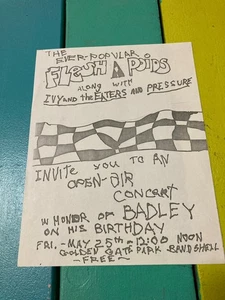 THE
EVER-POPULAR
FLESH APOIDS
ALONG WITH
IVY and the EATERS AND PRESSURE
INVITE YOU TO AN
OPEN-AIR
CONCERT
IN HONOR OF BADLEY
ON HIS BIRTHDAY
FRI.-MAY 25th-12:00 NOON
GOLDEN GATE PARK BAND SHELL
-FREE-